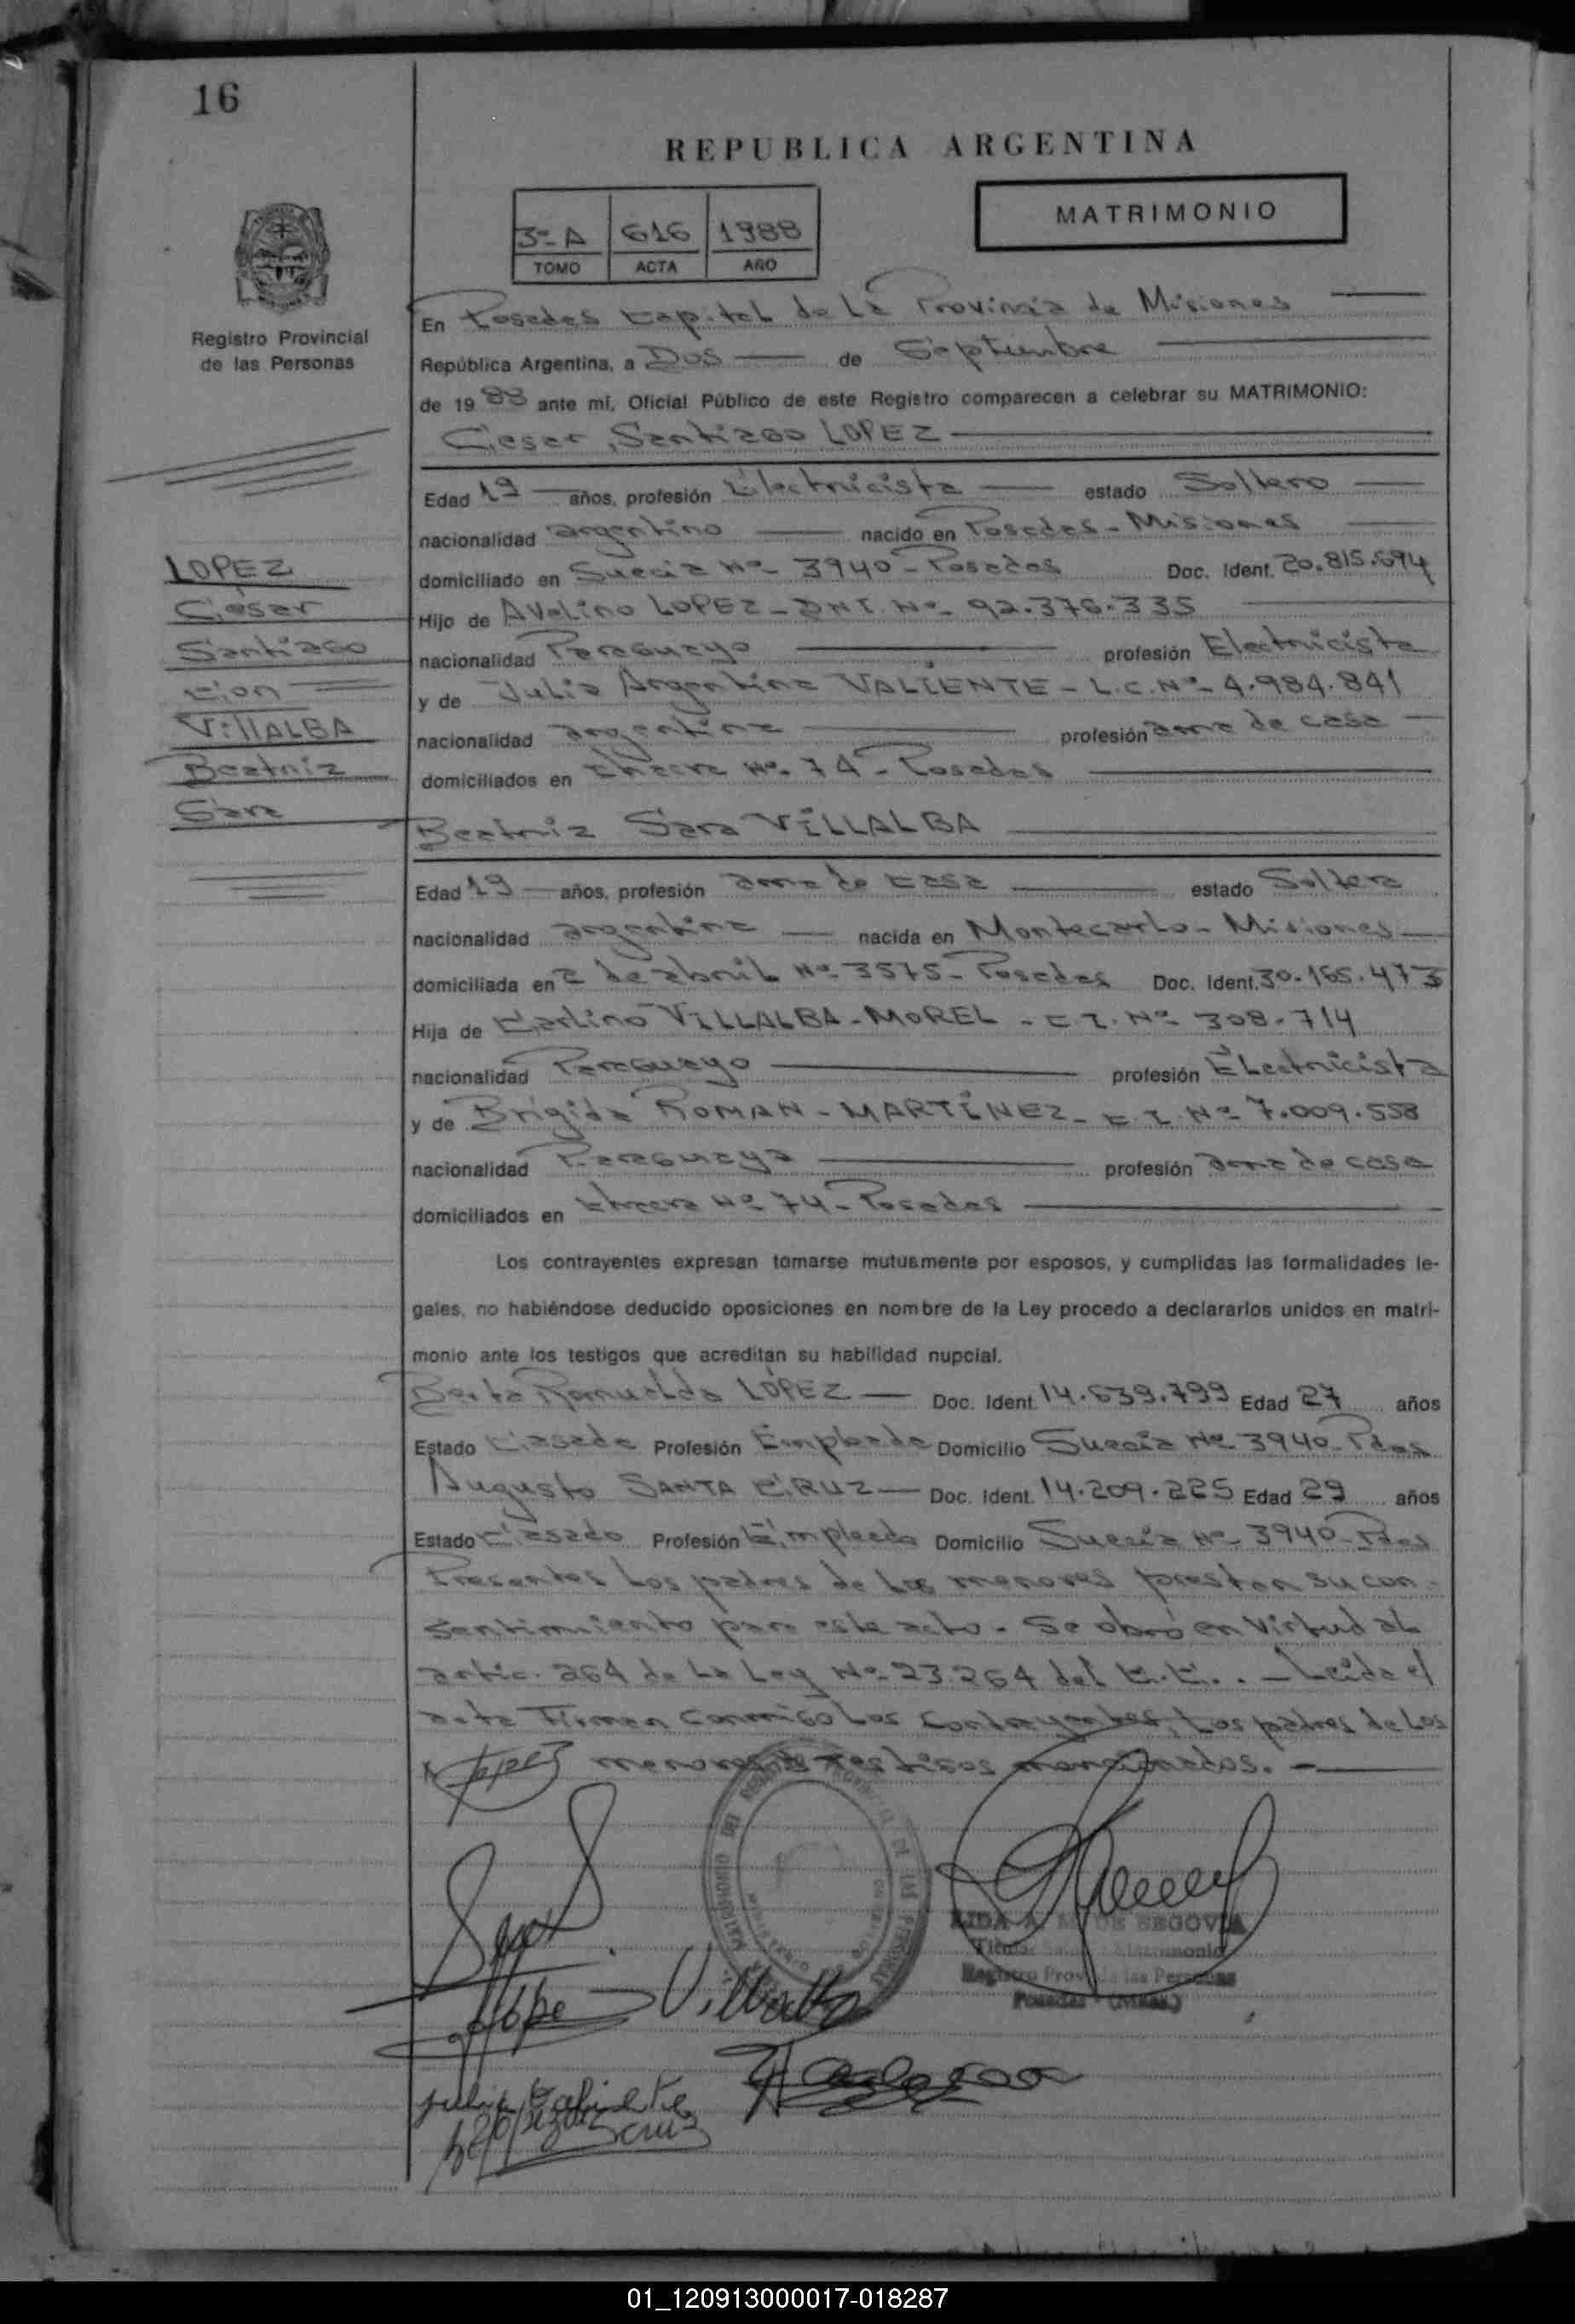 16
REPUBLICA ARGENTINA
MATRIMONIO
3º A 616 1988
TOMO ACTA AÑO
Registro Provincial
de las Personas
En Posadas Capital de La Provincia de Misiones
República Argentina, a Dos de Septiembre
de 1988 ante mí, Oficial Público de este Registro comparecen a celebrar su MATRIMONIO:
César Santiago LOPEZ
Edad 19 años, profesión Electricista estado Soltero
nacionalidad argentino nacido en Posadas - Misiones
domiciliado en Suecia Nº 3940 - Posadas Doc. Ident. 20.815.694
Hijo de Avelino LOPEZ - DNI. Nº 92.376.335
nacionalidad Paraguayo profesión Electricista
y de Julia Argentina VALIENTE - L.C. Nº 4.984.841
nacionalidad argentina profesión ama de casa
domiciliados en Chacra Nº 74 - Posadas
LOPEZ
César
Santiago
con
VillALBA
Beatriz
Sara
Beatriz Sara VILLALBA
Edad 19 años, profesión ama de casa estado Soltera
nacionalidad argentina nacida en Montecarlo - Misiones
domiciliada en 2 de abril Nº 3575 - Posadas Doc. Ident. 30.165.473
Hija de Carlino VILLALBA - MOREL - C.I. Nº 308.714
nacionalidad Paraguayo profesión Electricista
y de Brígida ROMAN - MARTÍNEZ - C.I. Nº 7.009.558
nacionalidad Paraguaya profesión ama de casa
domiciliados en Chacra Nº 74 - Posadas
Los contrayentes expresan tomarse mutuamente por esposos, y cumplidas las formalidades le-
gales, no habiéndose deducido oposiciones en nombre de la Ley procedo a declararlos unidos en matri-
monio ante los testigos que acreditan su habilidad nupcial.
Berta Romualda LÓPEZ Doc. Ident. 14.639.799 Edad 27 años
Estado Casada Profesión Empleada Domicilio Suecia Nº 3940 - Pdas
Augusto SANTA CRUZ Doc. Ident. 14.209.225 Edad 29 años
Estado Casado Profesión Empleado Domicilio Suecia Nº 3940 - Pdas
Presentes Los padres de los menores prestan su con-
sentimiento para este acto. Se obró en Virtud al
artic. 264 de La Ley Nº 23.264 del C.C.. - Leída el
acta Firman Conmigo Los Contrayentes, Los padres de Los
A López menores testigos mencionados.
MATRIMONIO DEL
DE LAS PERSONAS
DE SEGOVIA
Matrimonio
Registro Prov. de las Personas
Posadas - (Mnes.)
López Villalba
Julia Valiente
S cruz
01_120913000017-018287